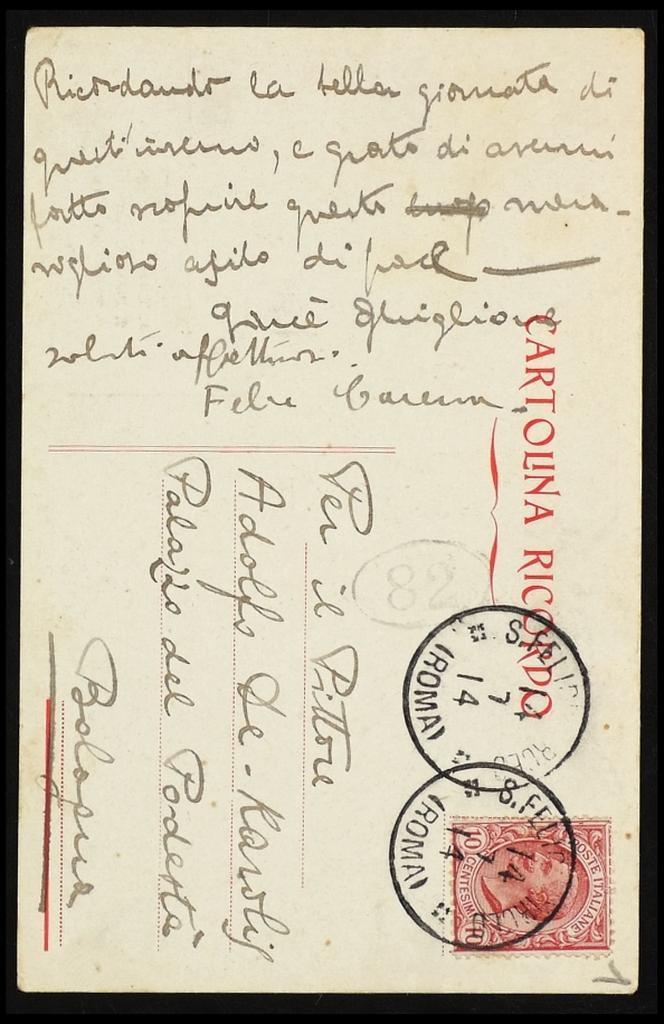 Ricordando la bella giornata di
questi inverno, e grato di avermi
fatto scoprire questo mera-
viglioso asilo di pace
Giucè Ghiglione
saluti affettuosi.
Felice Carena.
CARTOLINA RICORDO
Per il Pittore
Adolfo De-Karolis
Palazzo del Podestà
Bologna
82
S. FELICE
14
7
14
(ROMA)
S. FELICE
14
7
14
(ROMA)
POSTE ITALIANE
10 CENTESIMI
1